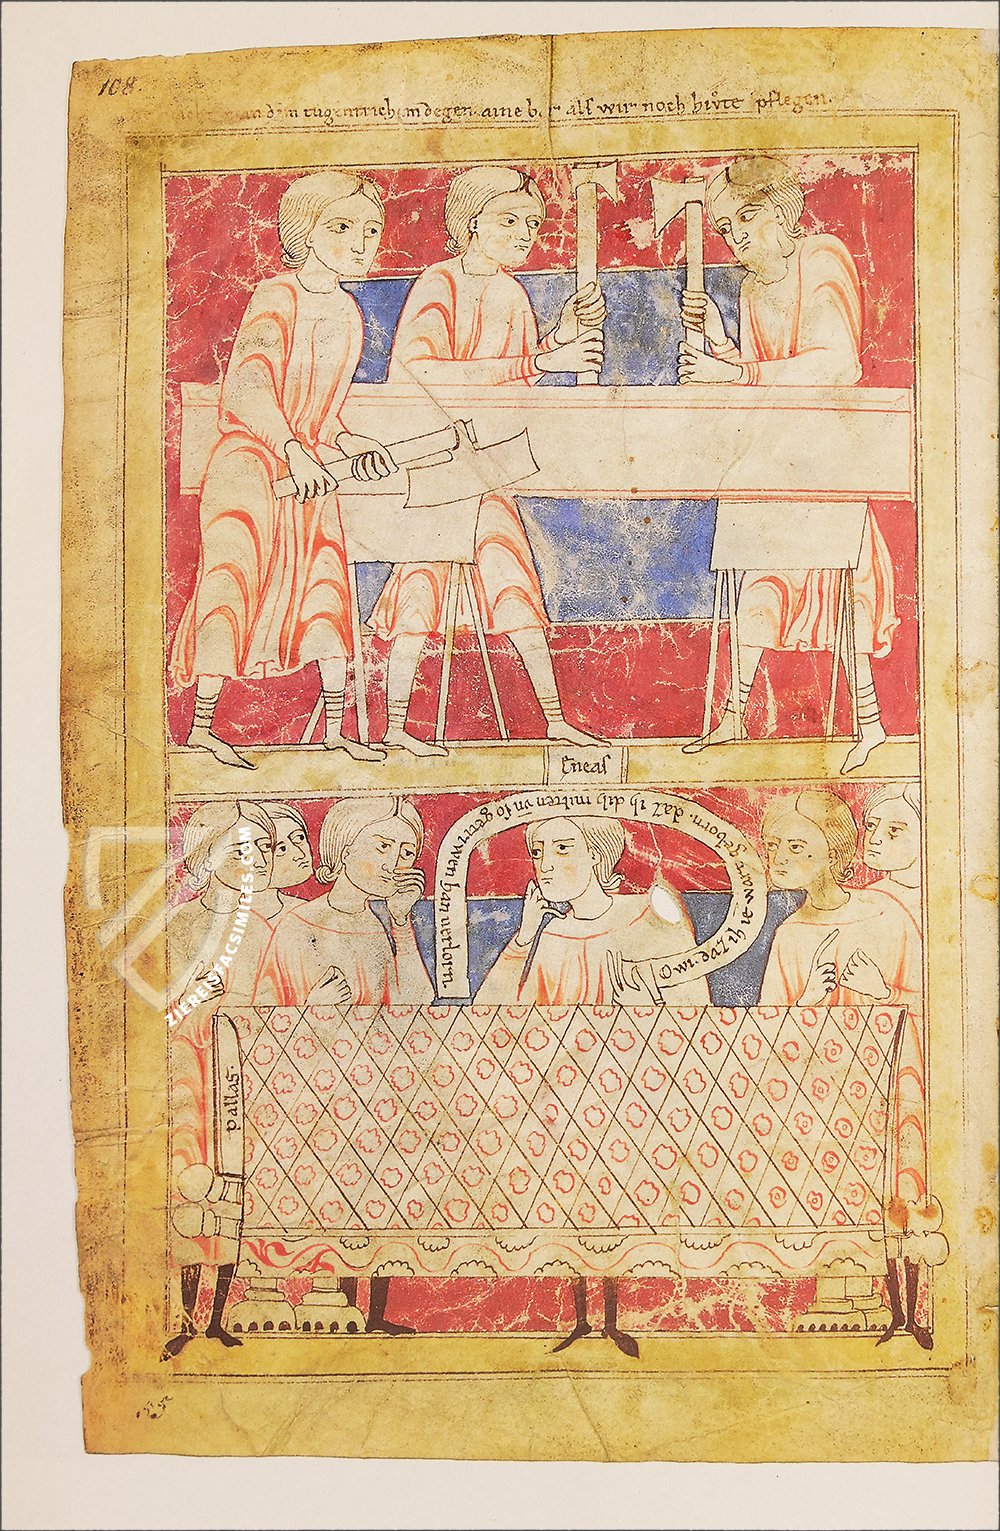 108.
dem tugentrichem degen. aine bar als wir noch hivͦte pflegen.
Eneas
Owi. daz ih ie wart geborn. daz ih dih mitten vn̄ so getriwen han verlorn
pallas.
ZIEREIS FACSIMILES.COM
155